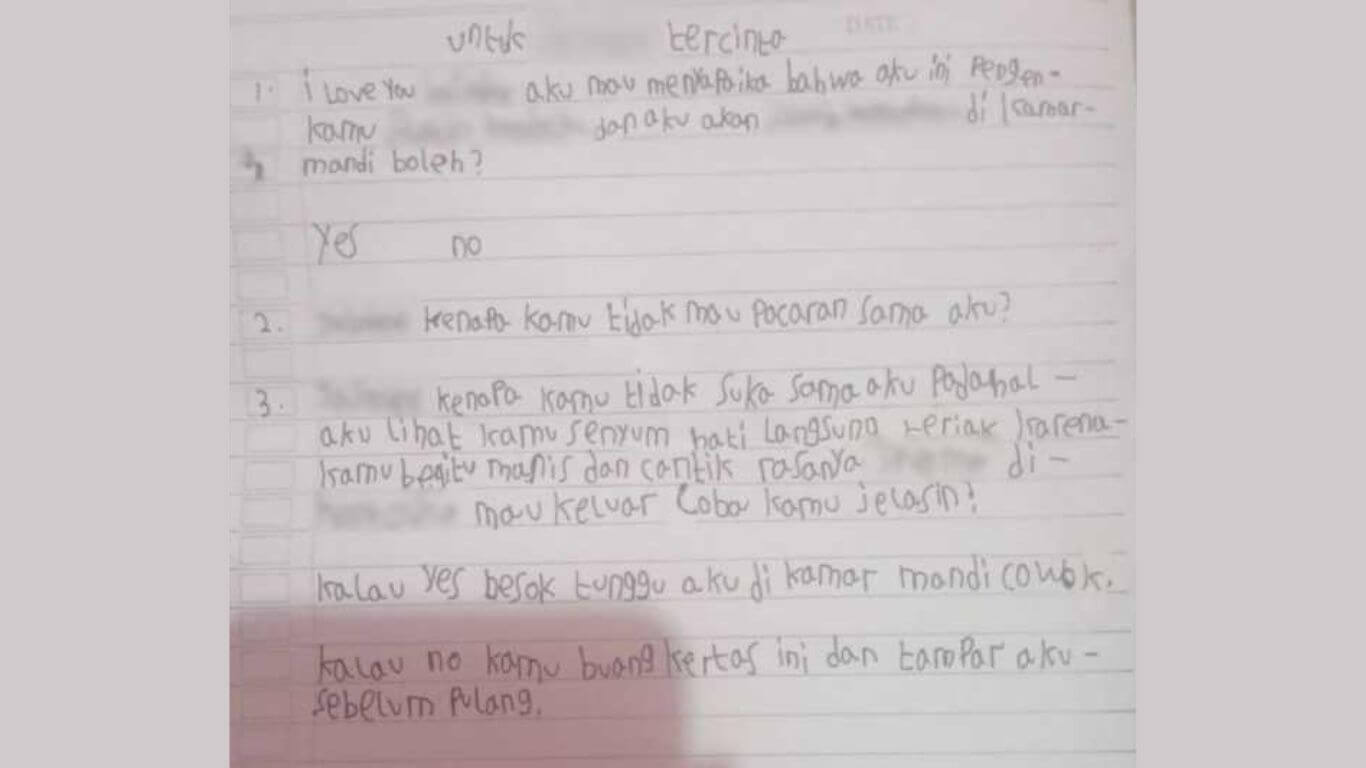 untuk tercinta
DATE
1. i Love You aku mau menyapaika bahwa aku ini Pengen-
kamu dan aku akan di kamar-
mandi boleh?
Yes no
2. kenapa kamu tidak mau pacaran sama aku?
3. kenapa kamu tidak suka sama aku Padahal -
aku lihat kamu senyum hati langsung teriak karena-
kamu begitu manis dan cantik rasanya di -
mau keluar Coba kamu jelasin!
kalau yes besok tunggu aku di kamar mandi cowok.
kalau no kamu buang kertas ini dan tampar aku -
sebelum Pulang.